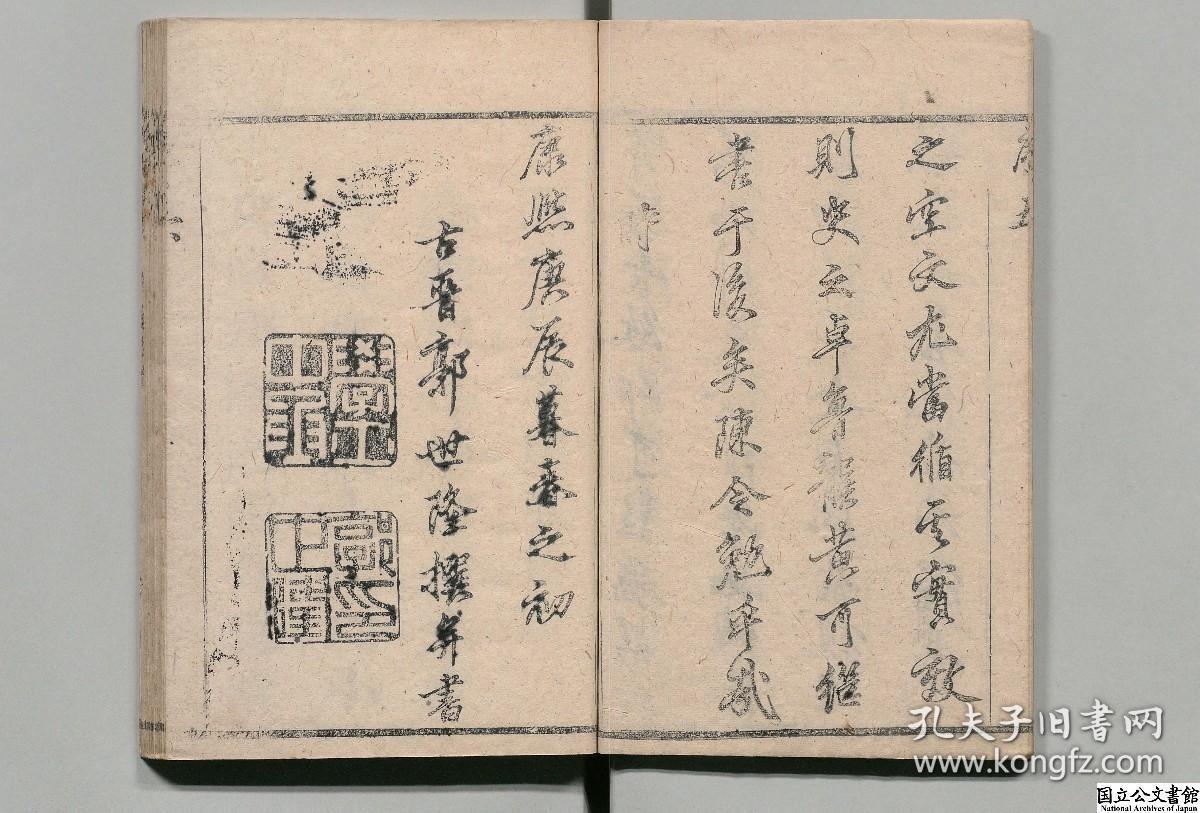 之空文尤當循其實效
則史之卓魯龔黃可繼
書于後矣陳令勉乎哉
康熙庚辰暮春之初
古晉郭世隆撰并書
孔夫子旧书网
www.kongfz.com
国立公文書館
National Archives of Japan